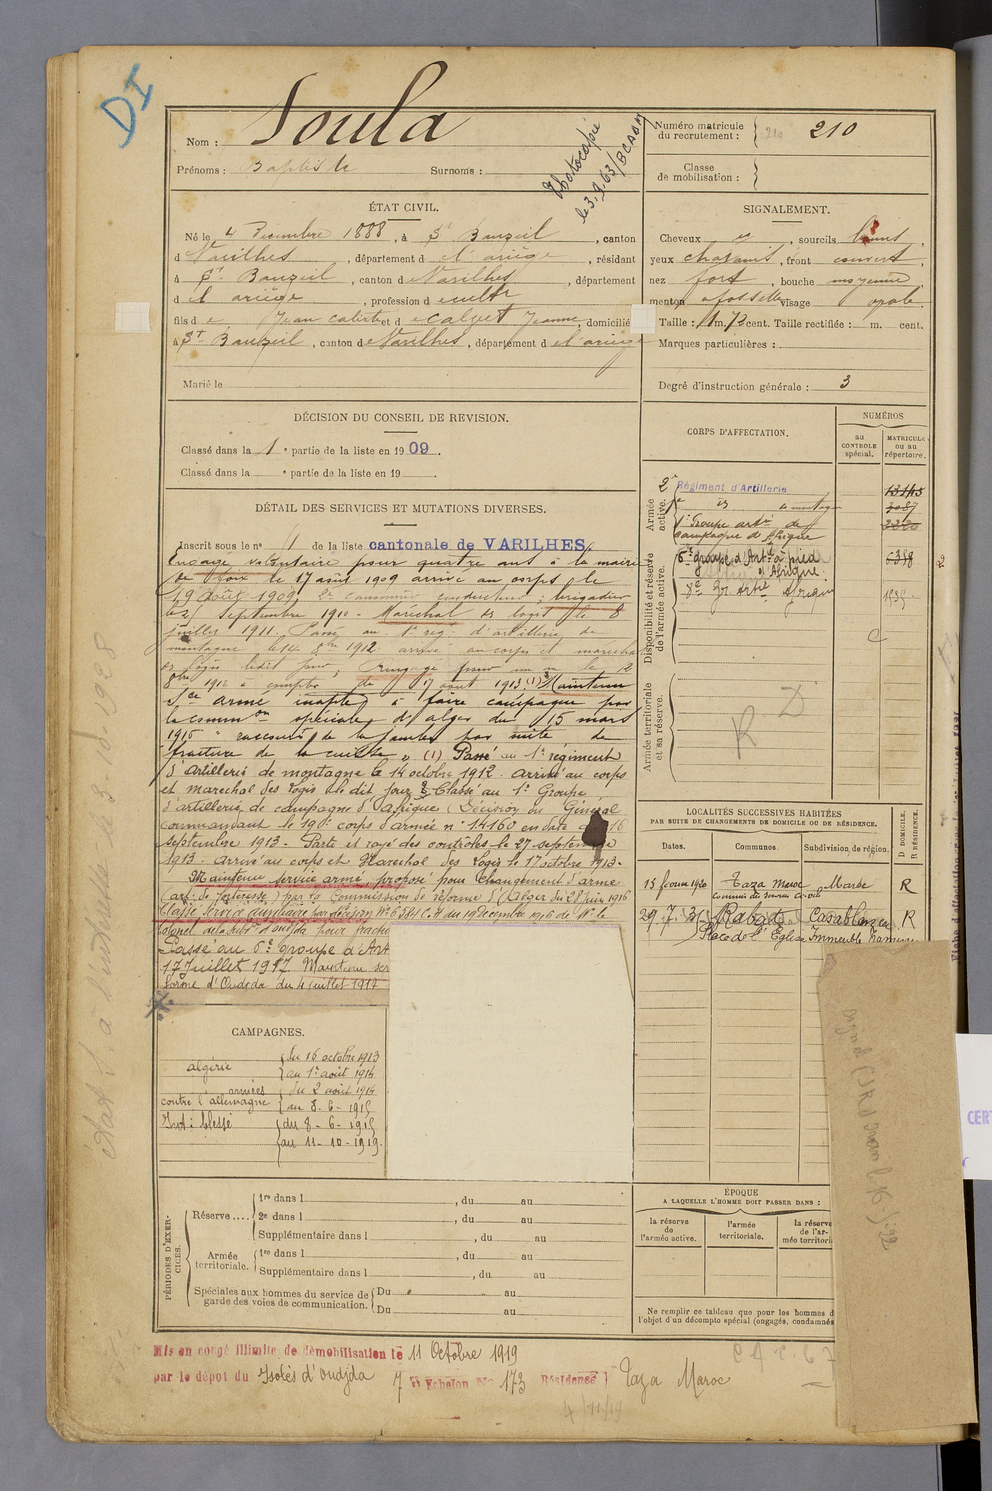 DI
Nom : Soula
Prénoms : Baptiste Surnoms :
Photocopié
le 3.9.63/BCAAM
Numéro matricule
du recrutement : 210
Classe
de mobilisation :
ÉTAT CIVIL.
Né le 4 Décembre 1888, à St Bauzeil, canton
d Varilhes, département d el'ariège, résidant
à St Bauzeil, canton de Varilhes, département
d el ariège, profession d e culttr
fils d e Jean calixte et d e calvet Jeanne, domicilié
à St Bauzeil, canton de Varilhes, département d el'ariège
Marié le
SIGNALEMENT.
Cheveux , sourcils bruns,
yeux chatains, front couvert,
nez fort, bouche moyenne
menton à fossette visage opale.
Taille : 1 m. 72 cent. Taille rectifiée : m. cent.
Marques particulières :
Degré d'instruction générale : 3
DÉCISION DU CONSEIL DE REVISION.
Classé dans la 1e partie de la liste en 1909.
Classé dans la e partie de la liste en 19
DÉTAIL DES SERVICES ET MUTATIONS DIVERSES.
Inscrit sous le n° 1 de la liste cantonale de VARILHES.
Engagé volontaire pour quatre ans à la mairie
de Foix le 17 août 1909 arrivé au corps le
19 août 1909, 2e canonnier conducteur ; brigadier
le 21 Septembre 1910 - Maréchal des logis le 8
juillet 1911. Passé au 1er reg. d'artillerie de
montagne le 14 8bre 1912 arrivé au corps et maréchal
des logis ledit jour, rengagé pour un an le 12
8bre 1912 à compter du 17 août 1913 (1) Maintenu
sce armé inapte à faire campagne par
la common spéciale d'alger du 15 mars
1915 "raccourt de la jambe par suite de
fracture de la cuisse" (1) Passé au 1er régiment
d'Artillerie de montagne le 14 octobre 1912. arrivé au corps
et marechal des Logis le dit jour Classé au 1er Groupe
d'artillerie de campagne d'Afrique (Décision du Général
commandant le 19e corps d'armée n° 14160 en date du 16
septembre 1913 - Parti et rayé des contrôles le 27 septembre
1913 - arrivé au corps et Marechal des Logis le 17 octobre 1913 -
Maintenu service armé, proposé pour changement d'arme
(art. de forteresse) par la commission de réforme d'Alger du 28 juin 1916
Classé Service auxiliaire par décision N° C.H du 19 Decembre 1916 de Mr le
colonel de la subd. d'oudjda pour fractu
Passé au 6e groupe d'Art
17 juillet 1917. Maintenu ser
forme d'Oudjda du 4 juillet 1917
CORPS D'AFFECTATION.
NUMÉROS
au
CONTROLE
spécial.
MATRICULE
ou au
répertoire.
Armée
active.
Disponibilité et réserve
de l'armée active.
Armée territoriale
et sa réserve.
2e Régiment d'Artillerie
1er id de montagne 3087
1er Groupe artie de
campagne d'Afrique
6e groupe d'Artie à pied
d'Afrique. 6398
8e Gr Artie Afrique
R D
LOCALITÉS SUCCESSIVES HABITÉES
PAR SUITE DE CHANGEMENTS DE DOMICILE OU DE RÉSIDENCE.
Dates. Communes. Subdivision de région. D DOMICILE. R RÉSIDENCE.
13 février 1920 Taza Maroc Maroc R
29.7.31 Rabat Casablanca R
Place de l'Eglise Immeuble
CAMPAGNES.
algérie du 16 octobre 1913
au 1er août 1914
armées du 2 août 1914
contre l'allemagne au 8 - 6 - 1915
Int. blessé du 8 - 6 - 1915
au 11 - 10 - 1919.
PÉRIODES D'EXERCICES.
Réserve .... 1re dans l , du au
2e dans l , du au
Supplémentaire dans l , du au
Armée
territoriale. 1re dans l , du au
Supplémentaire dans l , du au
Spéciales aux hommes du service de
garde des voies de communication. Du au
Du au
ÉPOQUE
A LAQUELLE L'HOMME DOIT PASSER DANS :
la réserve
de
l'armée active.
l'armée
territoriale.
la réserve
de l'ar-
mée territori
Ne remplir ce tableau que pour les hommes d
l'objet d'un décompte spécial (engagés, condamnés
Mis en congé illimité de démobilisation le 11 Octobre 1919
par le dépôt du Isolés d'Oudjda 7 Echelon N° 173 Résidence Taza Maroc
CERT